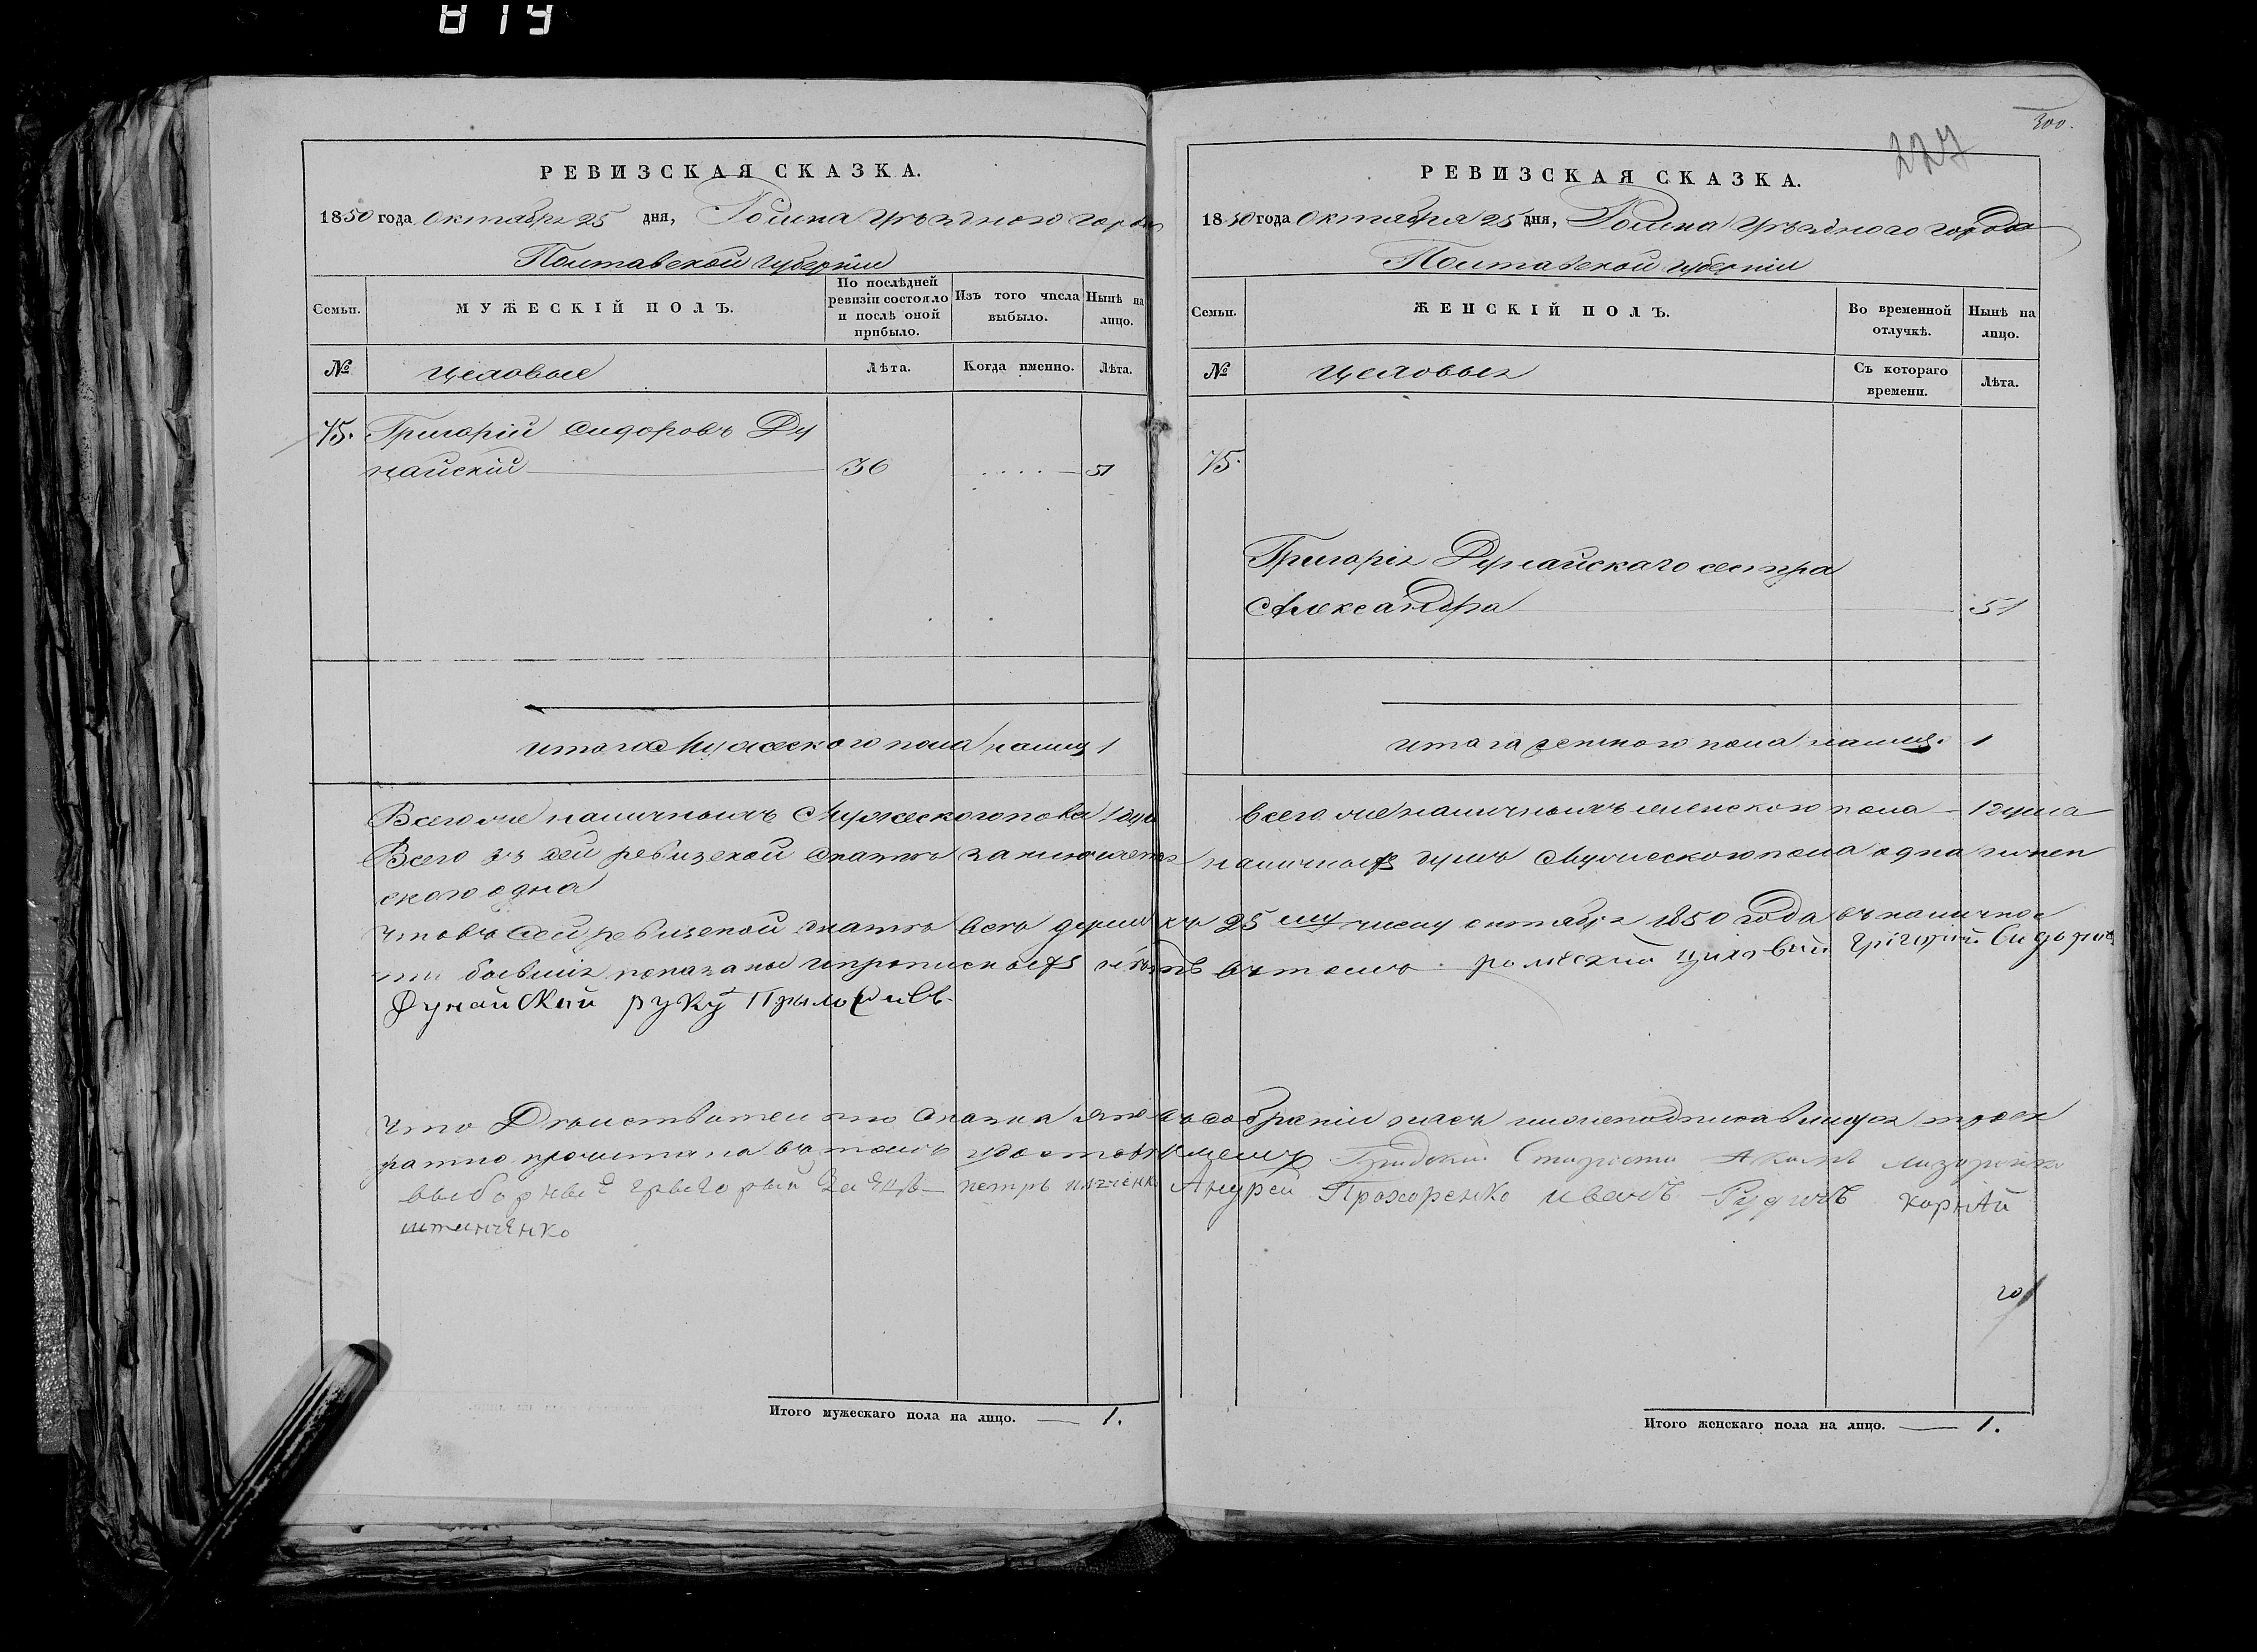 819
РЕВИЗСКАЯ СКАЗКА.
1850 года Октября 25 дня, Ромна Уѣзднаго города
Полтавской губерніи
Семьи. МУЖЕСКІЙ ПОЛЪ. По послѣдней ревизіи состояло и послѣ оной прибыло. Изъ того числа выбыло. Нынѣ на лицо.
№ Цеховые Лѣта. Когда именно. Лѣта.
75. Григорій Сидоровъ Ду
найскій 36 .... 51
итого Мужескаго пола налицо 1
300.
227
РЕВИЗСКАЯ СКАЗКА.
1850 года Октября 25 дня, Ромна Уѣзднаго города
Полтавской губерніи
Семьи. ЖЕНСКІЙ ПОЛЪ. Во временной отлучкѣ. Нынѣ на лицо.
№ Цеховыя Съ котораго времени. Лѣта.
75.
Григорія Дунайскаго сестра
Александра 51
итого женскаго пола налицо. 1
Всего же наличныхъ Мужескаго пола 1 душа всего же наличныхъ женскаго пола – 1 душа
Всего въ сей ревизской сказкѣ заключается наличныхъ душъ Мужескаго пола одна и жен
скаго одна
Что въ сей ревизской сказкѣ всѣ души къ 25му числу октября 1850 года въ налично
сти бывшія показаны и прописныхъ нѣтъ въ томъ роменскій цеховый Григорій Сидоровъ
Дунайский руку Приложилъ.
Что Дѣйствительно сказка эта въ собраніи насъ нижеподписавшихся троек
ратно прочитана въ томъ удостовѣряемъ Градский Староста
выборные Грыгорый Заяцъ Петръ Андрей Прохоренко Иванъ Рудичъ Корнѣй
201
Итого мужескаго пола на лицо. — 1.
Итого женскаго пола на лицо. — 1.